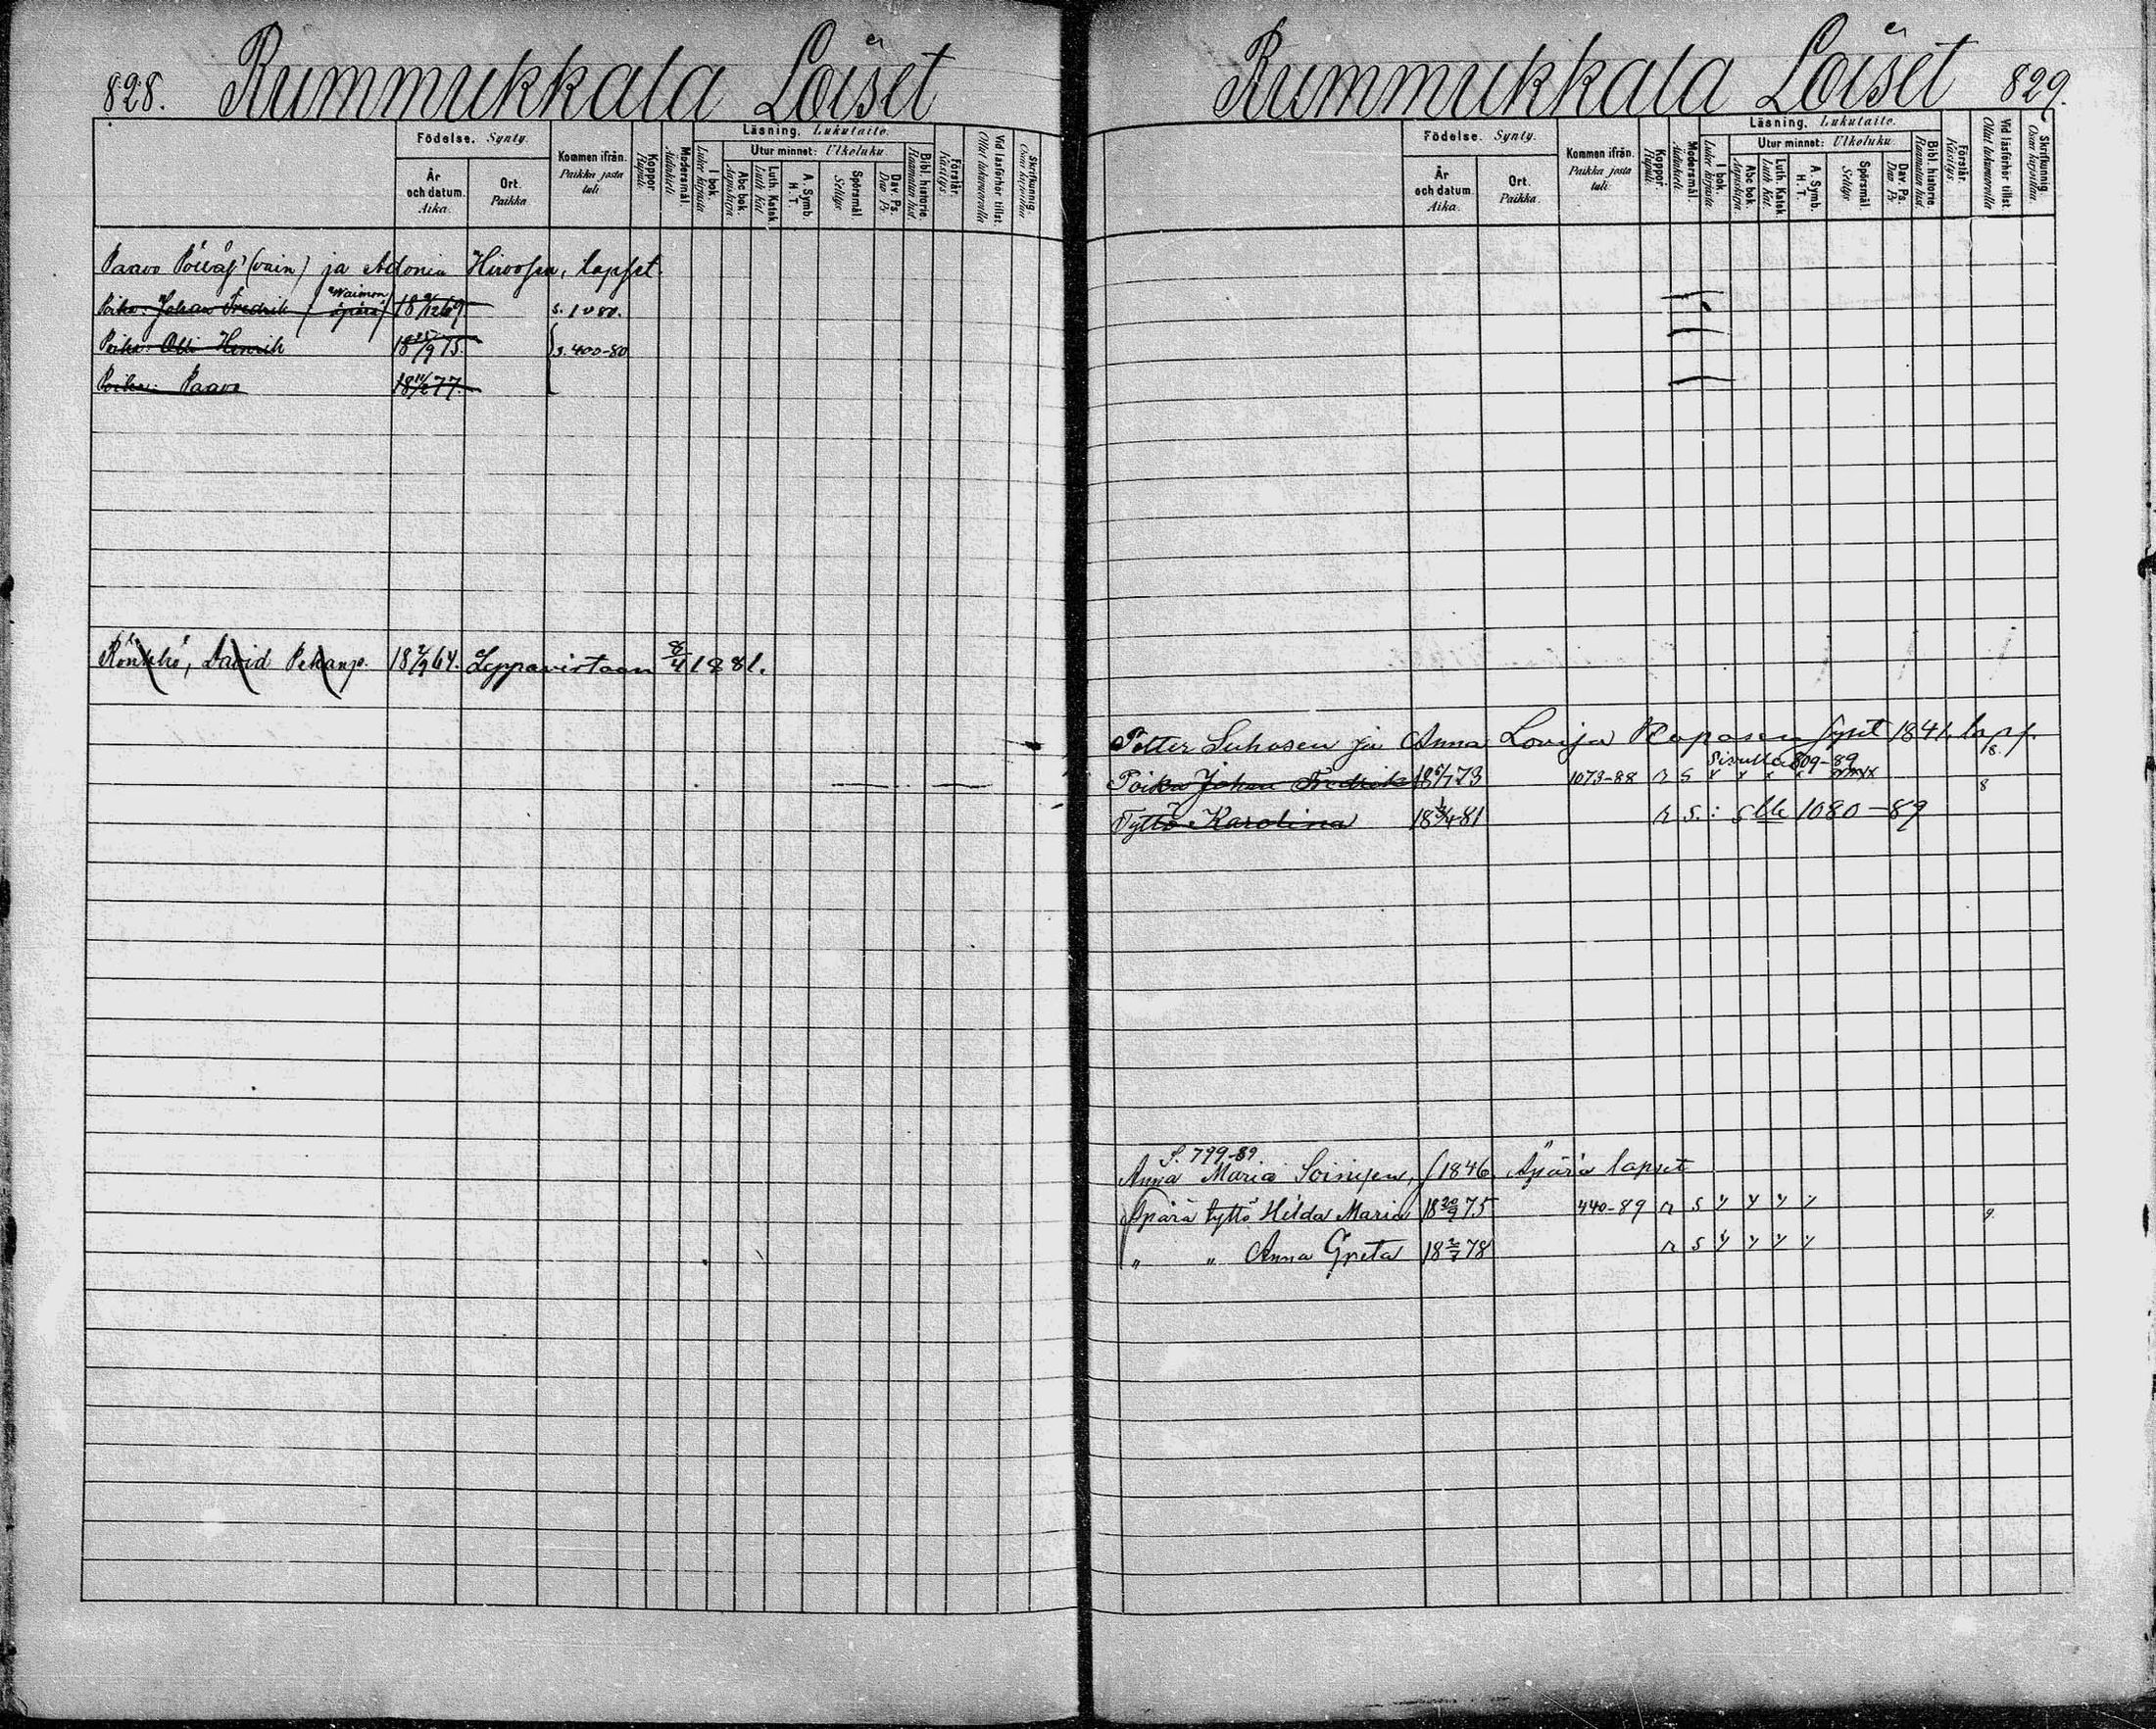 828. Rummukkala Loiset
Födelse. Synty.
År och datum. Aika.
Ort. Paikka.
Kommen ifrån. Paikka josta tuli
Koppor Rupuli.
Modersmål. Äidinkieli
Läsning. Lukutaito.
I bok. Luku kirjasta
Utur minnet: Ulkoluku
Abc bok Aapiskirja
Luth. Katek. Luth Kat.
A. Symb. H. T.
Spörsmål Selitys
Dav. Ps. Dav Ps
Bibl. historie Raamatun hist.
Förstår. Käsitys.
Vid läsförhör tillst. Ollut lukuvuorolla
Skrifkunnig. Osaa kirjoittaa
Paavo (vain) ja Adonia lapset
Poika: Johan Fredrik (Waimon äpärä) 18 /12 69 s. 1080.
Poika: Otto Henrik 18 25/9 75. s. 400-80
Poika: Paavo 18 11/2 77.
Rönkkö, David Pekanp. 18 2/9 64. Leppävirtaan 8/4 1881.
Rummukkala Loiset 829.
Födelse. Synty.
År och datum. Aika.
Ort. Paikka.
Kommen ifrån. Paikka josta tuli.
Koppor. Rupuli.
Modersmål. Äidinkieli.
Läsning. Lukutaito.
I bok. Luku kirjasta
Utur minnet: Ulkoluku
Abc bok. Aapiskirja
Luth. Katek. Luth. Kat.
A. Symb. H. T.
Spörsmål. Selitys
Dav. Ps. Dav Ps
Bibl. historie. Raamatun hist.
Förstår. Käsitys.
Vid läsförhör tillst. Ollut lukuvuorolla
Skrifkunnig. Osaa kirjoittaa.
Petter Suhosen ja Anna Lovisa synt 1841. laps.
8.
Sivulle 809-89
Poika Johan Fredrik 18 6/7 73 1073-88 r s 8
Tyttö Karolina 18 3/4 81 r s. : slle 1080-89
S. 799-89.
Anna Maria Soinisen, s 1846, Äpärä lapset
Äpärä tyttö Hilda Maria 18 20/9 75 440-89 r s y y y y 9.
" " Anna Greta 18 2/7 78 r s y y y y